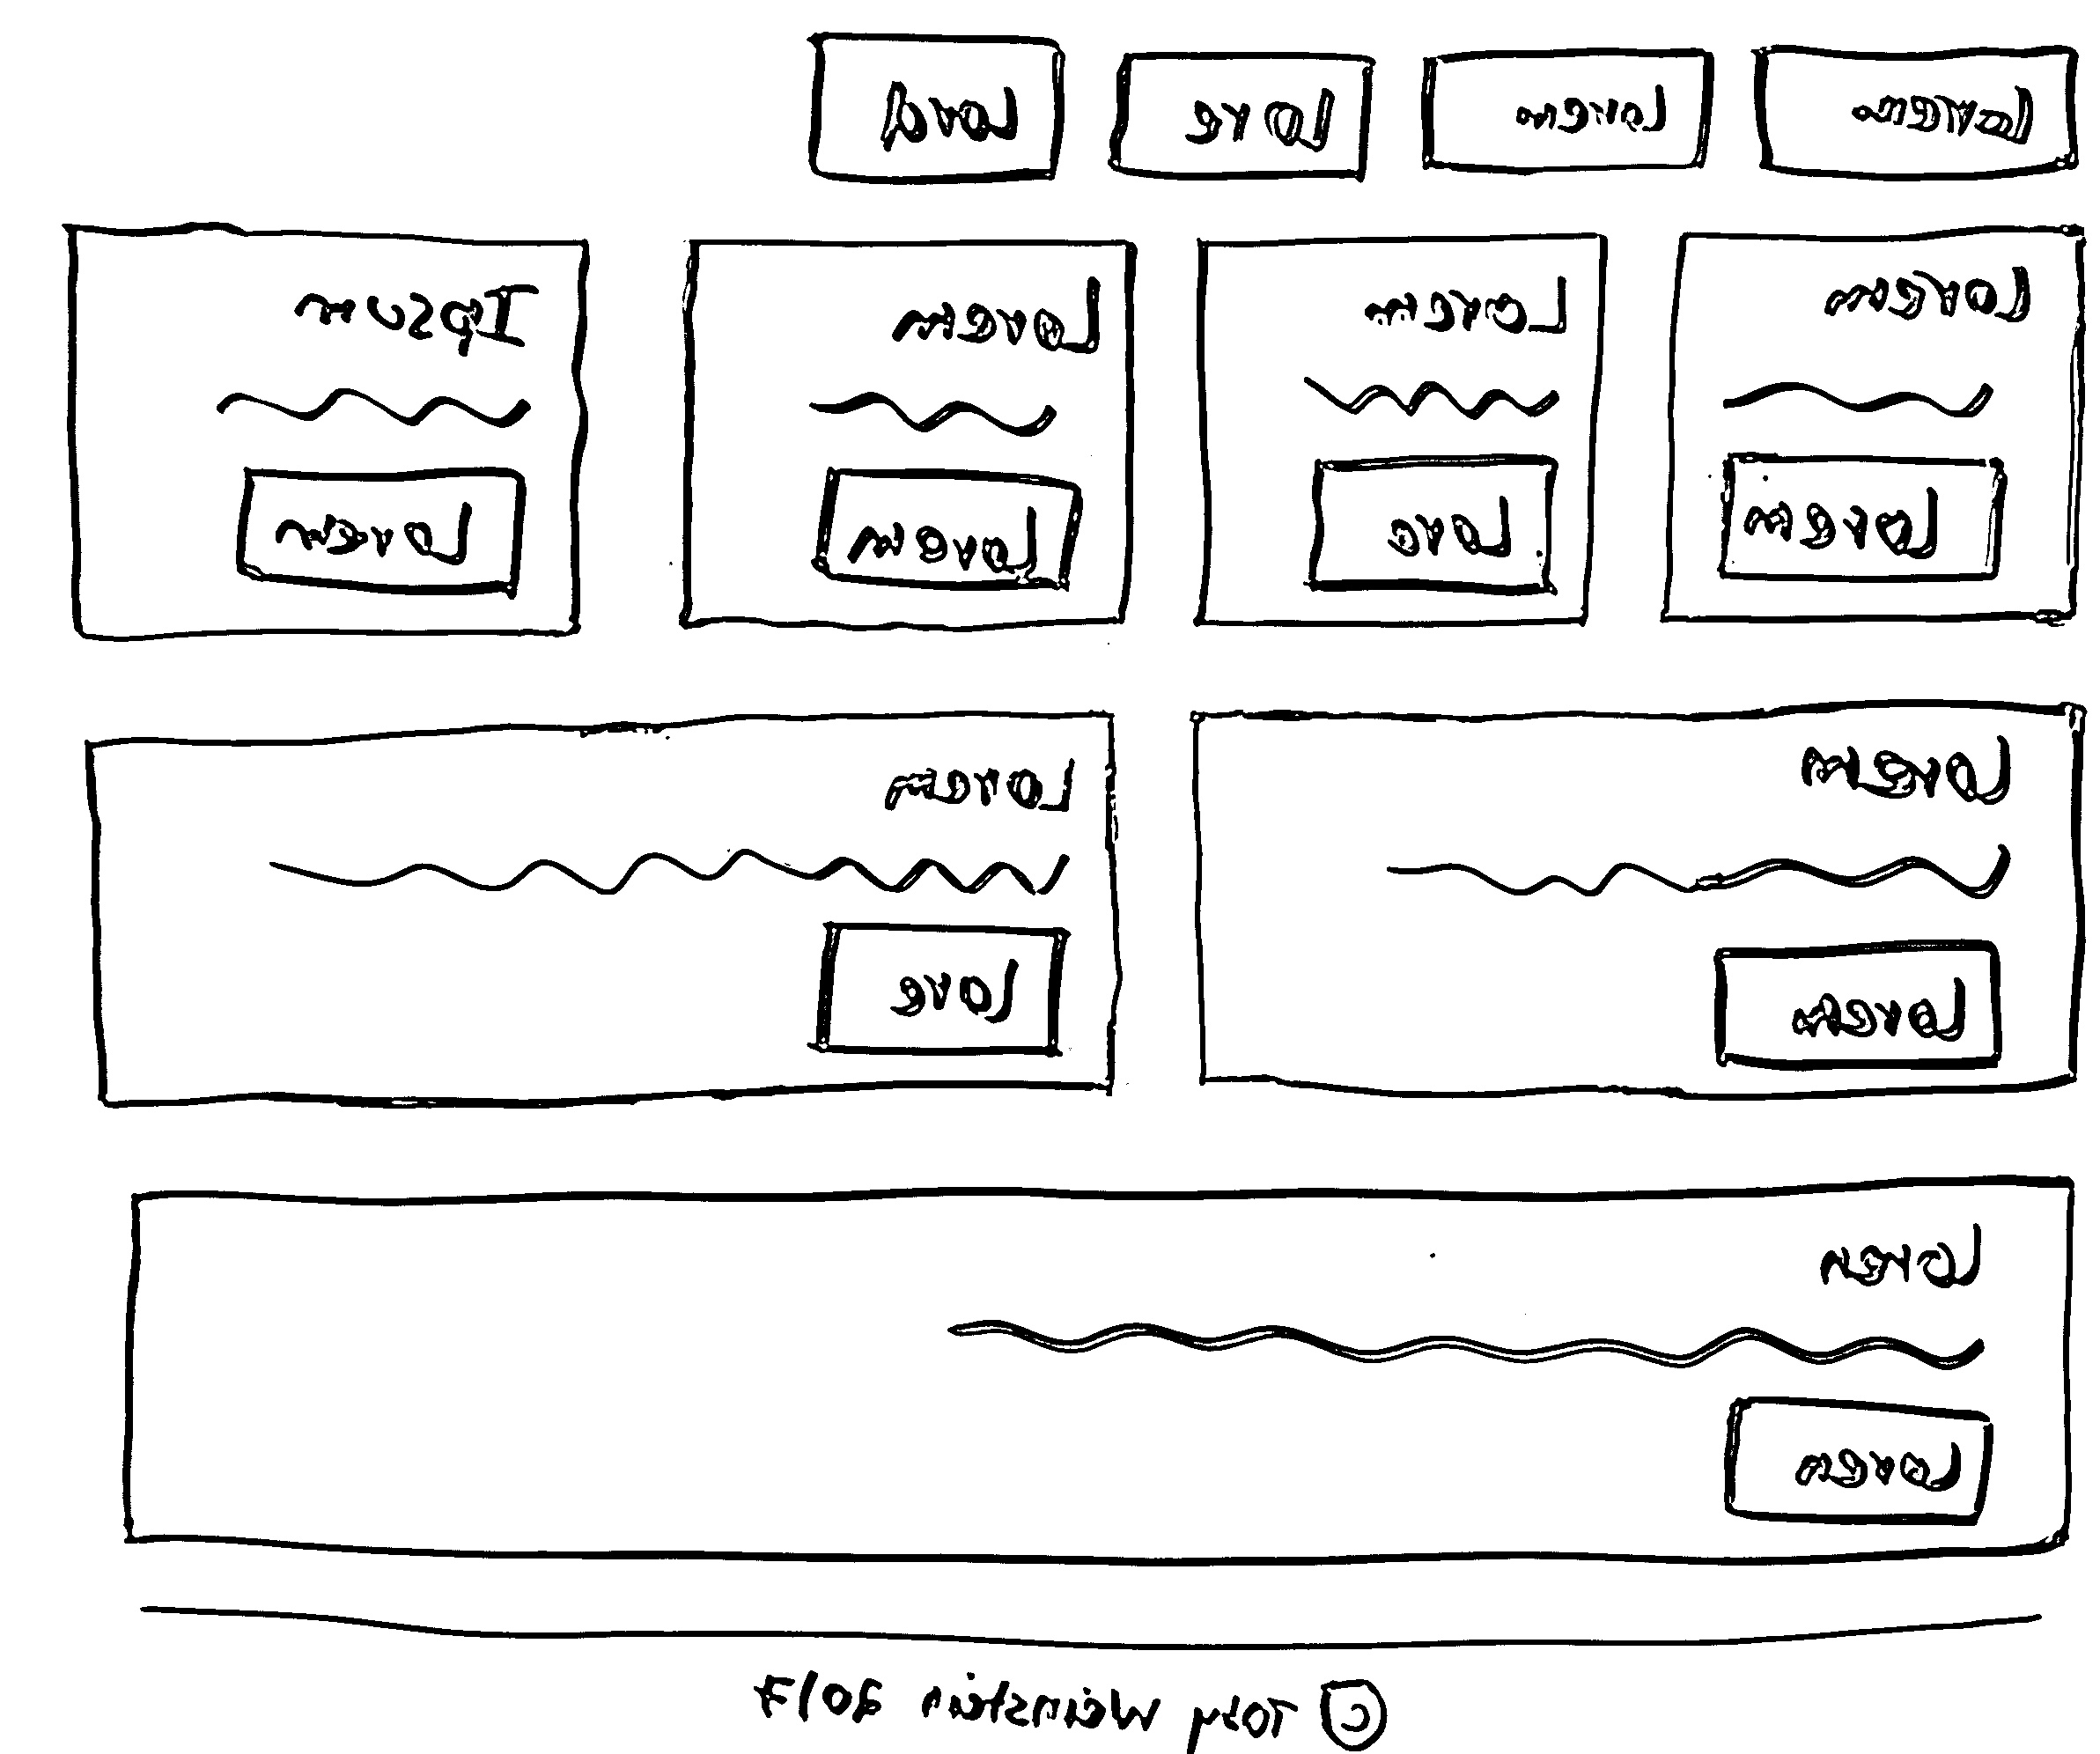 Lorem Lorem Lore Lord
Lorem Lorem Lorem Ipsum
Lorem Lore Lorem Lorem
Lorem Lorem
Lorem Lore
Loren
Loren
© Tory Weinstein 2017